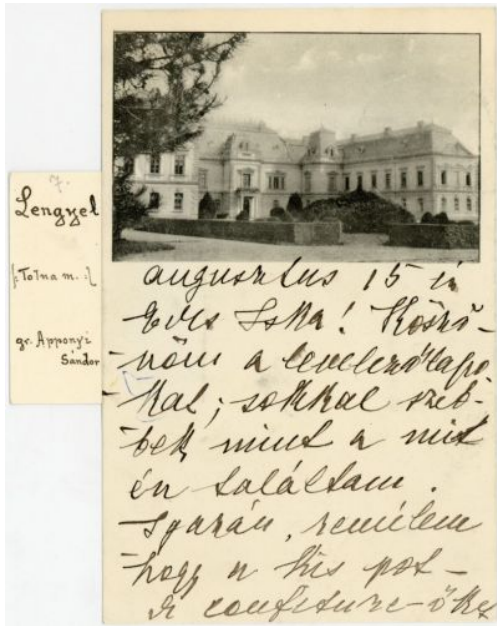 7.
Lengyel
(: Tolna m. :)
gr. Apponyi
Sándor
augusztus 15 én
Édes Iska! Köszö-
nöm a levelezőlapo-
kat; sokkal szeb-
bek mint a mit
én találtam.
Igazán, remélem
hogy a kis pot-
à confiture-öket